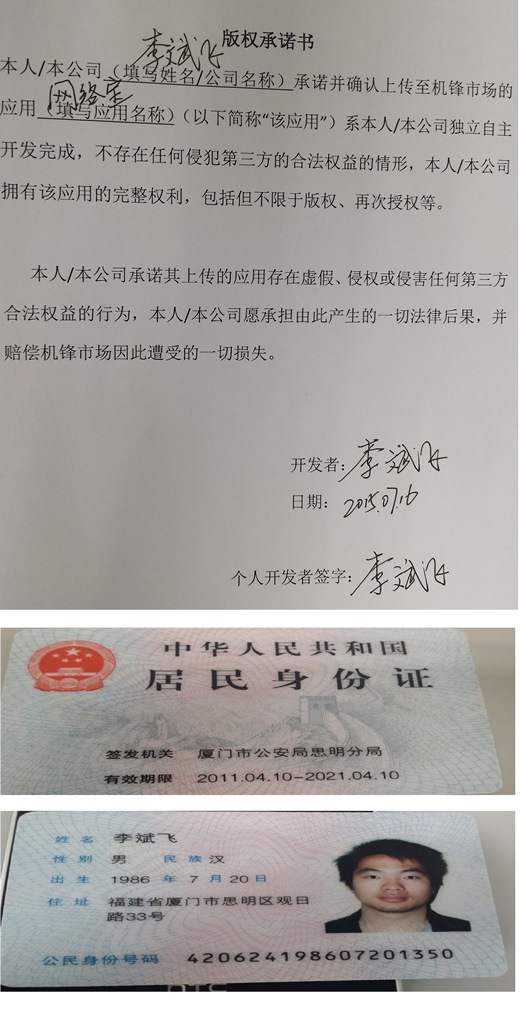 姓名 李斌飞
性别 男 民族 汉
出生 1986 年 7 月 20 日
住址 福建省厦门市思明区观日
路33号
公民身份号码 420624198607201350
中华人民共和国
居民身份证
签发机关 厦门市公安局思明分局
有效期限 2011.04.10-2021.04.10
版权承诺书
李斌飞
本人/本公司（填写姓名/公司名称）承诺并确认上传至机锋市场的
应用（填写应用名称）（以下简称“该应用”）系本人/本公司独立自主
开发完成，不存在任何侵犯第三方的合法权益的情形，本人/本公司
拥有该应用的完整权利，包括但不限于版权、再次授权等。
本人/本公司承诺其上传的应用存在虚假、侵权或侵害任何第三方
合法权益的行为，本人/本公司愿承担由此产生的一切法律后果，并
赔偿机锋市场因此遭受的一切损失。
开发者：李斌飞
日期：2015.07.16
个人开发者签字：李斌飞